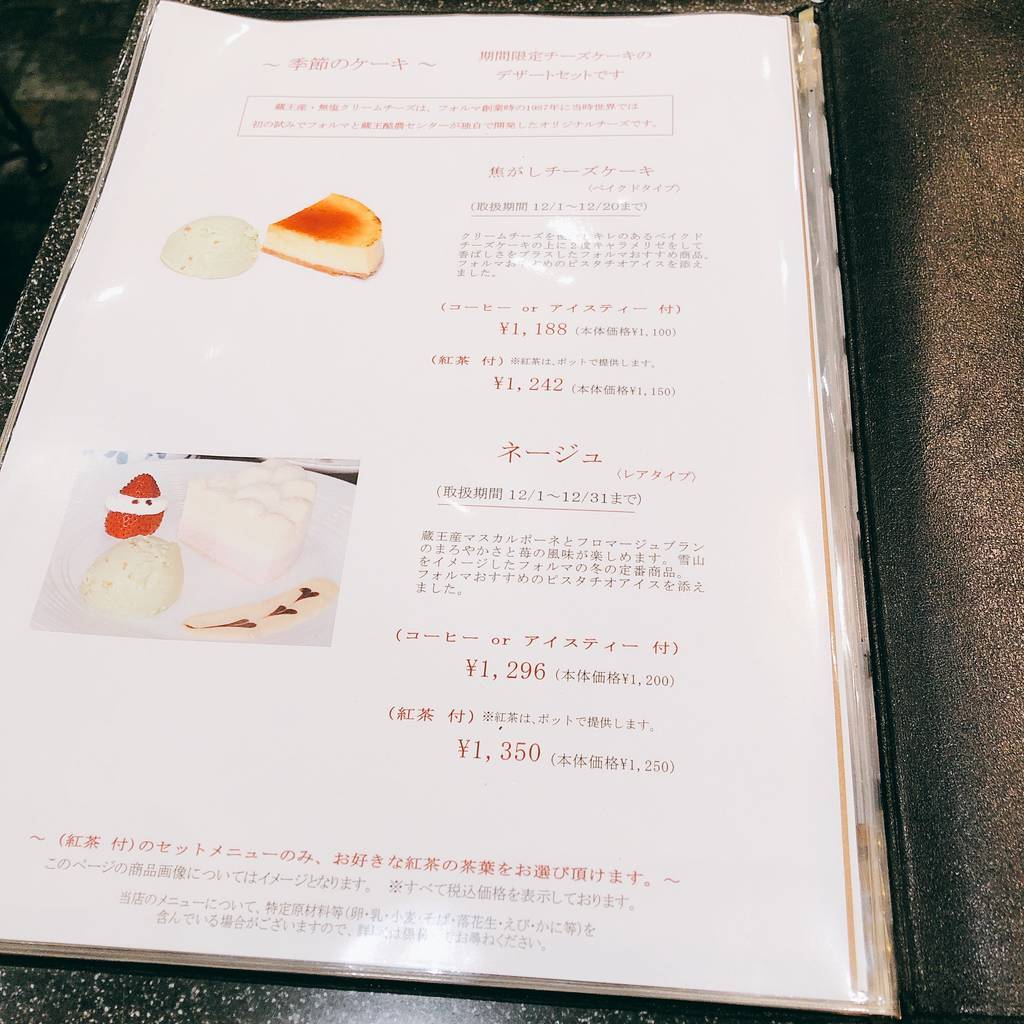 ～ 季節のケーキ ～
期間限定チーズケーキの
デザートセットです
蔵王産・無塩クリームチーズは、フォルマ創業時の1987年に当時世界では
初の試みでフォルマと蔵王酪農センターが独自で開発したオリジナルチーズです。
焦がしチーズケーキ
〈ベイクドタイプ〉
(取扱期間 12/1～12/20まで)
クリームチーズを キレのあるベイクド
チーズケーキの上に2度キャラメリゼをして
香ばしさをプラスしたフォルマおすすめ商品。
フォルマおすすめのピスタチオアイスを添え
ました。
(コーヒー or アイスティー 付)
¥1,188 (本体価格¥1,100)
(紅茶 付) ※紅茶は、ポットで提供します。
¥1,242 (本体価格¥1,150)
ネージュ
〈レアタイプ〉
(取扱期間 12/1～12/31まで)
蔵王産マスカルポーネとフロマージュブラン
のまろやかさと苺の風味が楽しめます。雪山
をイメージしたフォルマの冬の定番商品。
フォルマおすすめのピスタチオアイスを添え
ました。
(コーヒー or アイスティー 付)
¥1,296 (本体価格¥1,200)
(紅茶 付) ※紅茶は、ポットで提供します。
¥1,350 (本体価格¥1,250)
～ (紅茶 付)のセットメニューのみ、お好きな紅茶の茶葉をお選び頂けます。～
このページの商品画像についてはイメージとなります。 ※すべて税込価格を表示しております。
当店のメニューについて、特定原材料等(卵・乳・小麦・そば・落花生・えび・かに等)を
含んでいる場合がございますので、詳しくは係 でお尋ねください。